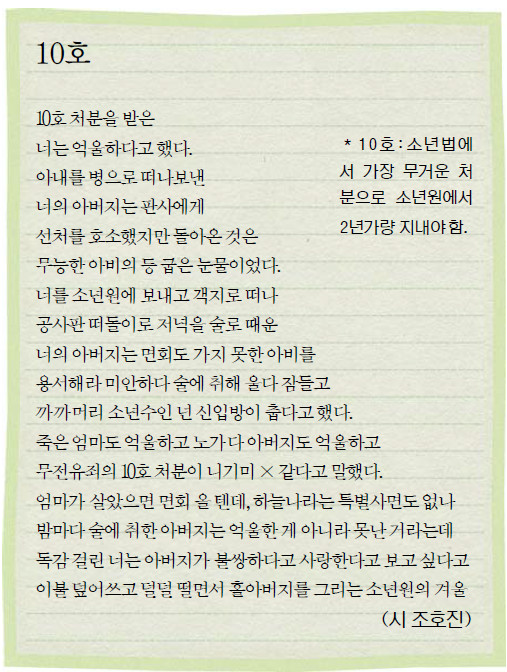 10호
10호 처분을 받은
너는 억울하다고 했다.
아내를 병으로 떠나보낸
너의 아버지는 판사에게
선처를 호소했지만 돌아온 것은
무능한 아비의 등 굽은 눈물이었다.
너를 소년원에 보내고 객지로 떠나
공사판 떠돌이로 저녁을 술로 때운
너의 아버지는 면회도 가지 못한 아비를
용서해라 미안하다 술에 취해 울다 잠들고
까까머리 소년수인 넌 신입방이 춥다고 했다.
죽은 엄마도 억울하고 노가다 아버지도 억울하고
무전유죄의 10호 처분이 니기미 × 같다고 말했다.
엄마가 살았으면 면회 올 텐데, 하늘나라는 특별사면도 없나
밤마다 술에 취한 아버지는 억울한 게 아니라 못난 거라는데
독감 걸린 너는 아버지가 불쌍하다고 사랑한다고 보고 싶다고
이불 덮어쓰고 덜덜 떨면서 홀아버지를 그리는 소년원의 겨울
(시 조호진)
* 10호 : 소년법에
서 가장 무거운 처
분으로 소년원에서
2년가량 지내야 함.